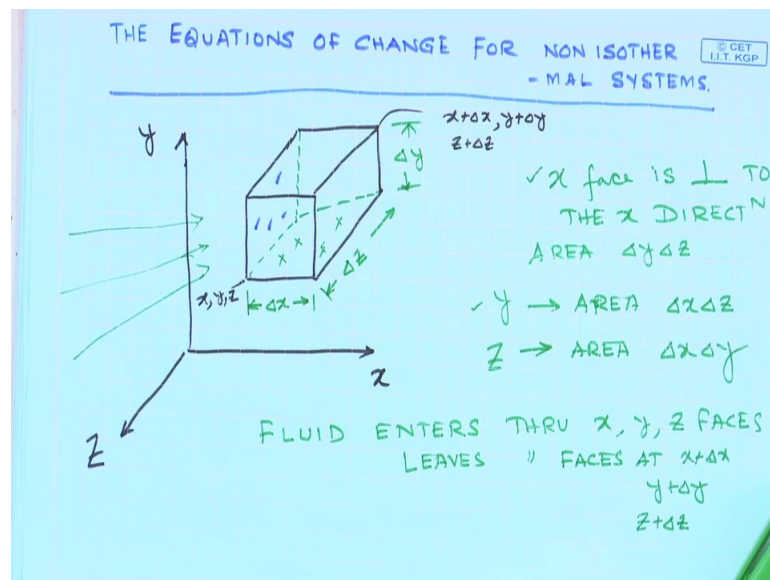 THE EQUATIONS OF CHANGE FOR NON ISOTHER
-MAL SYSTEMS.
© CET
I.I.T. KGP
x+Δx, y+Δy
z+Δz
y
Δy
✓ x face is ⊥ TO
THE x DIRECTᴺ
AREA ΔyΔz
Δz
x,y,z
Δx
✓ y → AREA ΔxΔz
z → AREA ΔxΔy
x
z
FLUID ENTERS THRU x, y, z FACES
LEAVES " FACES AT x+Δx
y+Δy
z+Δz